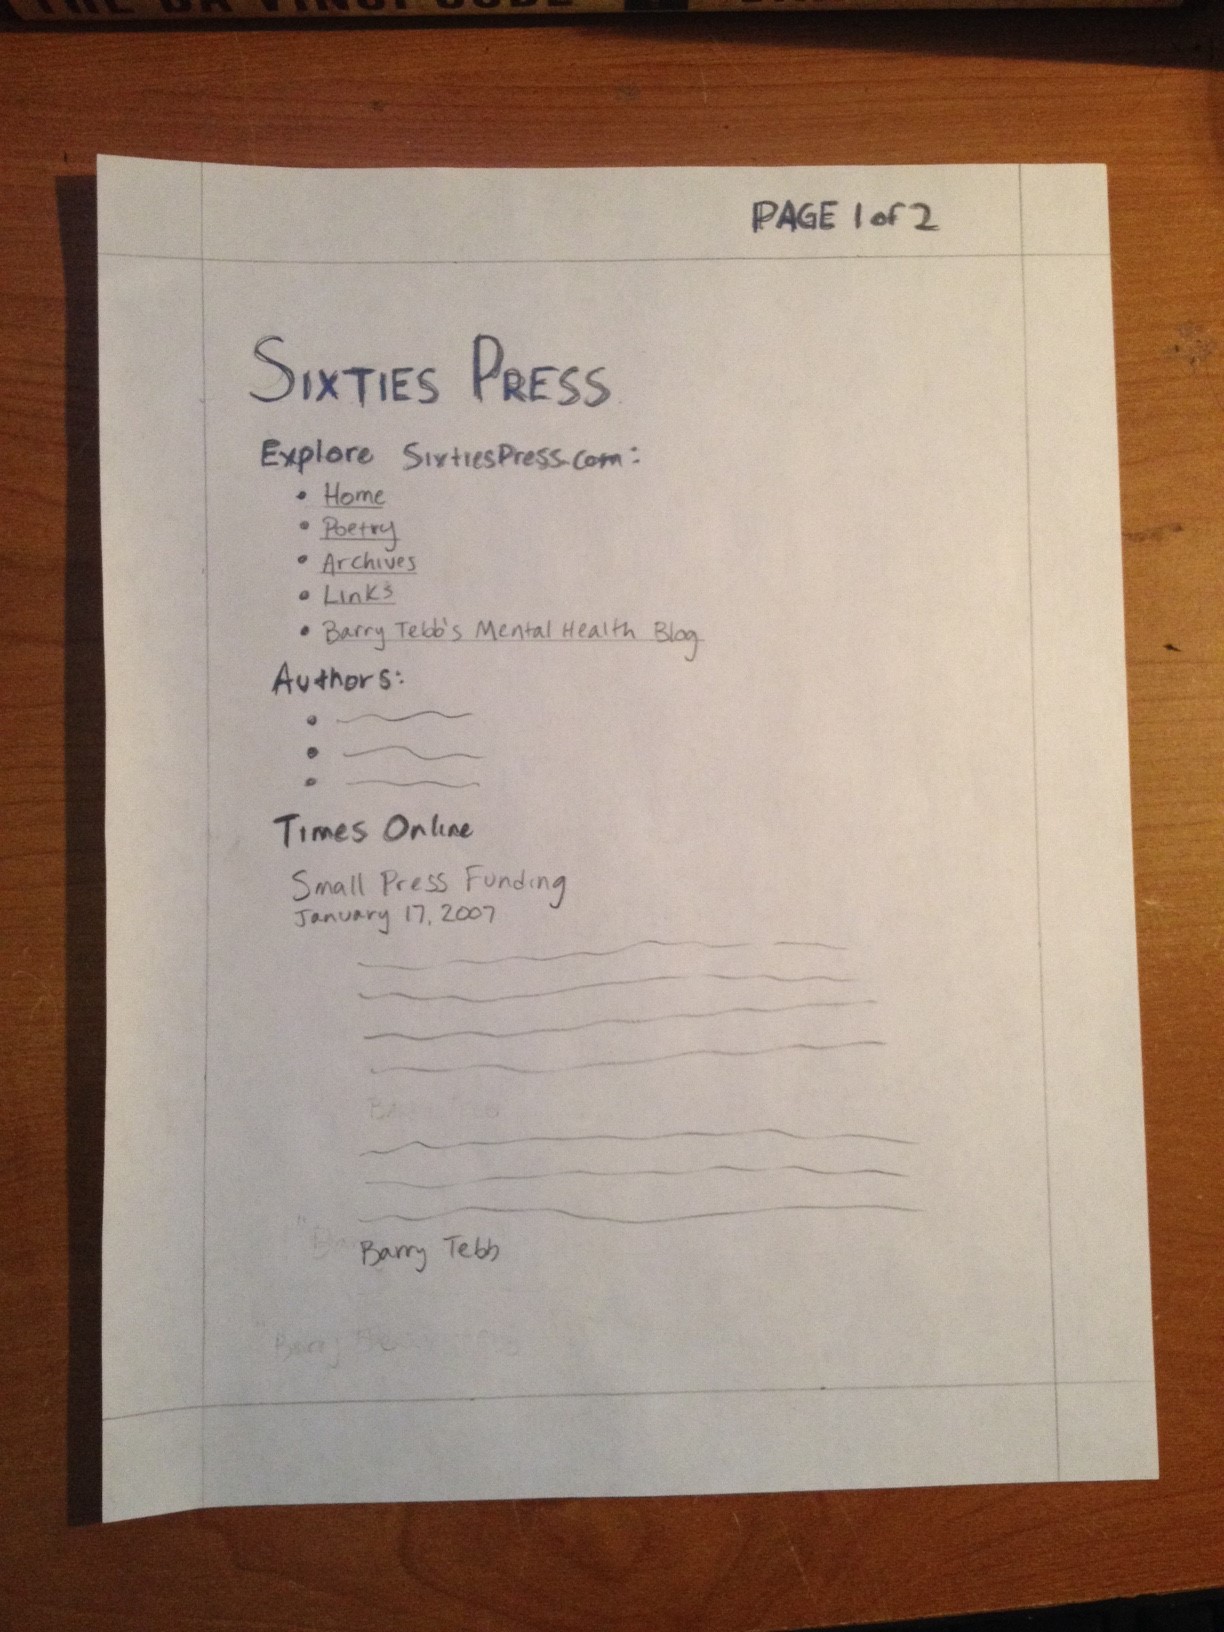 THE DA VINCI CODE
PAGE 1 of 2
SIXTIES PRESS
Explore SixtiesPress.com:
• Home
• Poetry
• Archives
• Links
• Barry Tebb's Mental Health Blog
Authors:
Times Online
Small Press Funding
January 17, 2007
Barry Tebb
Barry